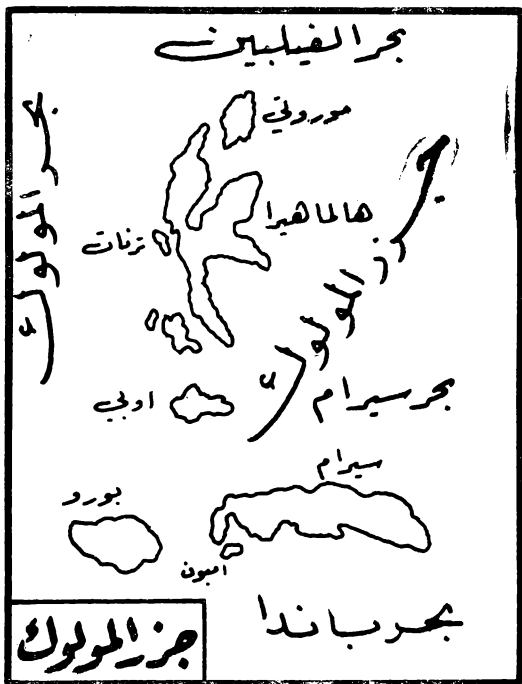 بحر الفيلبين
بحر الملوك
موروتي
هالماهيرا
ترنات
جزر الملوك
اوبي
بحر سيرام
سيرام
بورو
امبون
بحر باندا
جزر المولوك